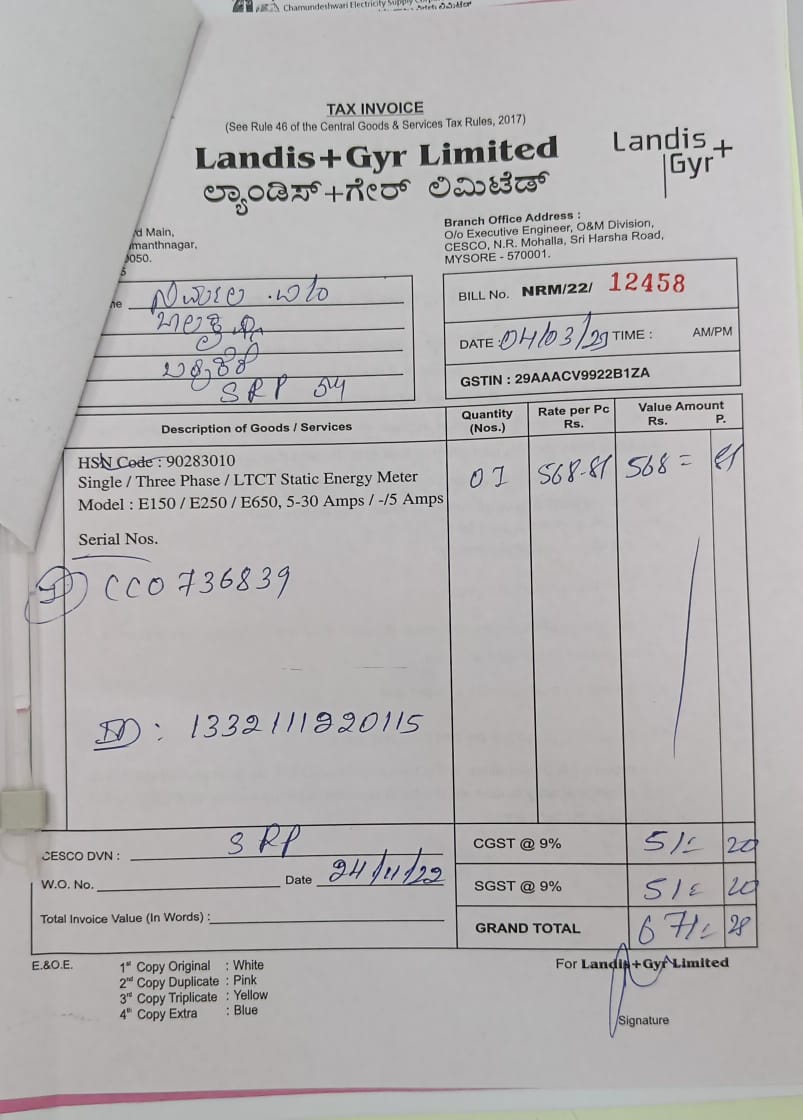 Chamundeshwari Electricity Supply
TAX INVOICE
(See Rule 46 of the Central Goods & Services Tax Rules, 2017)
Landis+Gyr Limited
ಲ್ಯಾಂಡಿಸ್+ಗೇರ್ ಲಿಮಿಟೆಡ್
Landis
Gyr+
d Main,
manthnagar,
0050.
Branch Office Address :
O/o Executive Engineer, O&M Division,
CESCO, N.R. Mohalla, Sri Harsha Road,
MYSORE - 570001.
SRP
BILL No. NRM/22/ 12458
DATE : 04/03/ TIME : AM/PM
GSTIN : 29AAACV9922B1ZA
Description of Goods / Services Quantity (Nos.) Rate per Pc Rs. Value Amount Rs. P.
HSN Code : 90283010
Single / Three Phase / LTCT Static Energy Meter 01 568-81 568 = 81
Model : E150 / E250 / E650, 5-30 Amps / -/5 Amps
Serial Nos.
CCO736839
ID : 1332111220115
CESCO DVN : SRP
W.O. No. Date 24/11/22
Total Invoice Value (In Words) :
CGST @ 9% 51= 20
SGST @ 9% 51= 20
GRAND TOTAL 671= 28
E.&O.E.
1st Copy Original : White
2nd Copy Duplicate : Pink
3rd Copy Triplicate : Yellow
4th Copy Extra : Blue
For Landis+Gyr Limited
Signature